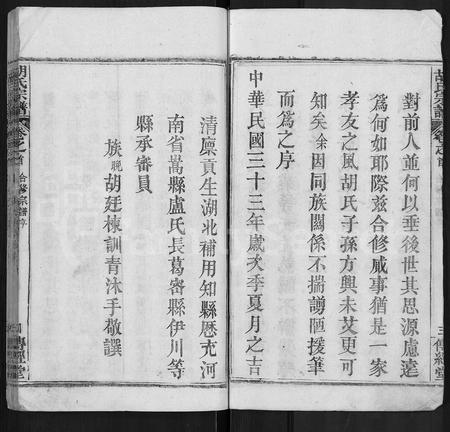 對前人並何以垂後世其思源慮遠
爲何如耶際茲合修威事猶是一家
孝友之風胡氏子孫方興未艾更可
知矣余因同族關係不揣謭陋援筆
而爲之序
中華民國三十三年歲次季夏月之吉
清廩貢生湖北補用知縣歷充河
南省嵩縣盧氏長葛密縣伊川等
縣承審員
族晚胡廷棟訓青沐手敬譔
胡氏宗譜
卷之首
三
傳經堂
胡氏宗譜
卷之首
合修宗譜序
傳經堂